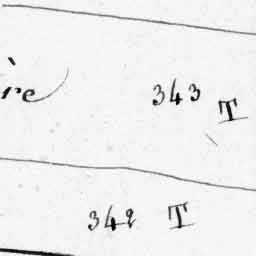 ère 343 T
342 T